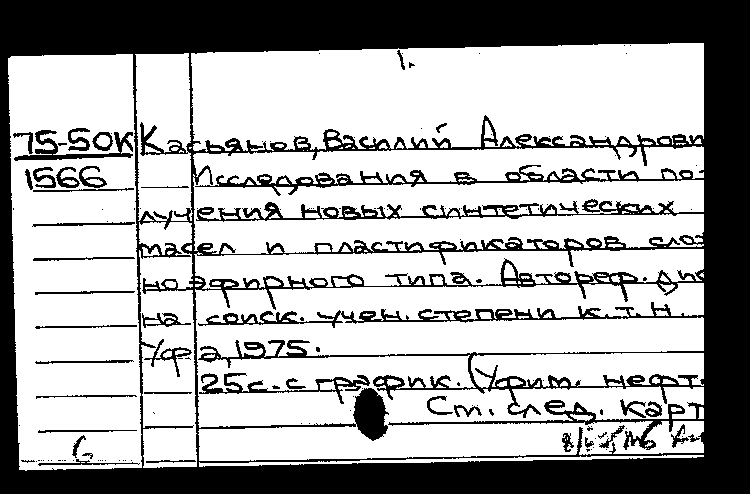 1.
75-50К Касьянов, Василий Александрови
1566 Исследования в области по-
лучения новых синтетических
масел и пластификаторов слож
ноэфирного типа. Автореф. дис
на соиск. учен. степени к.т.н.
Уфа, 1975.
25с. с график. (Уфим. нефт.
См. след. карт
6